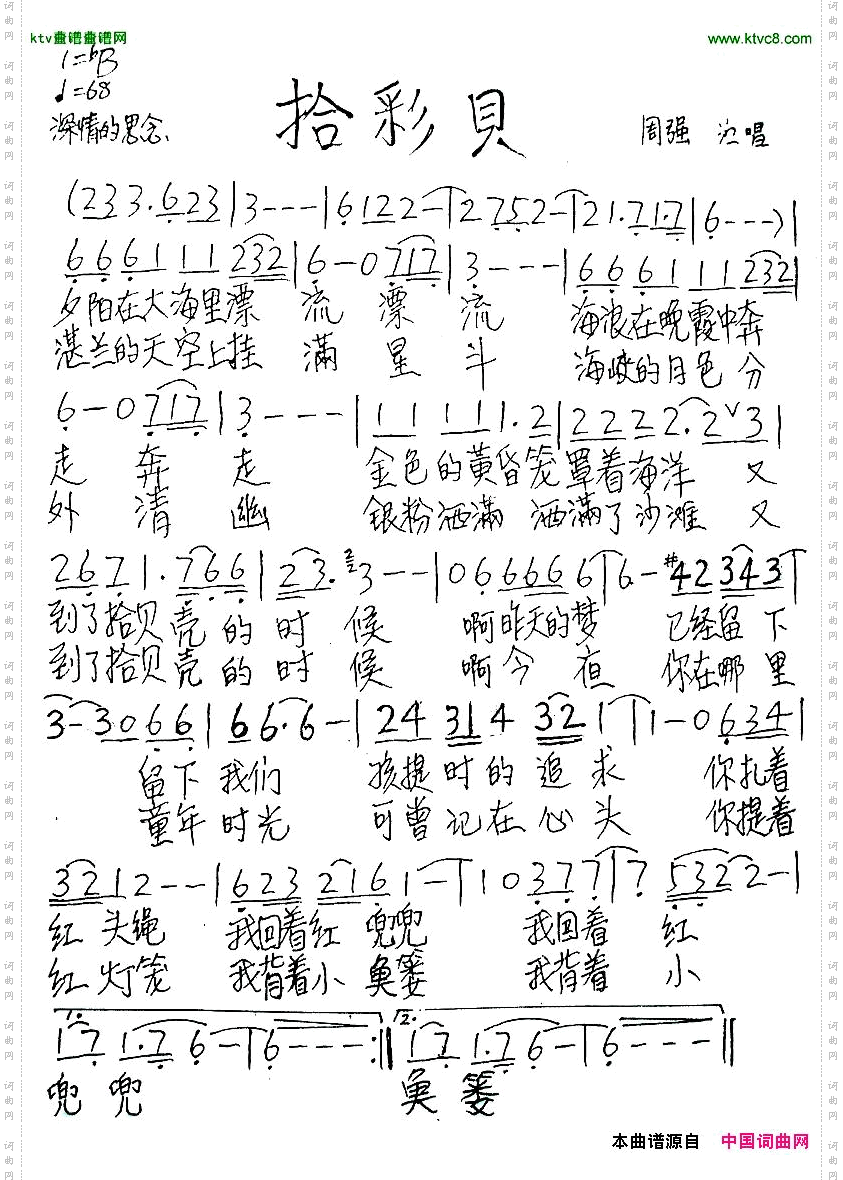 ktv曲谱曲谱网
www.ktvc8.com
1=bB
♩=68
深情的思念、
拾彩貝
周强 演唱
(233.623|3---|6122-|2752-|21.71.7|6---)|
666111232|6-0717|3---|666111232|
夕阳在大海里漂 流 漂 流 海浪在晚霞中奔
湛兰的天空上挂 滿 星 斗 海峡的月色分
6-0717|3---|11111.2|22222.2ˇ3|
走 奔 走 金色的黄昏笼罩着海洋 又
外 清 幽 银粉洒滿 洒滿了沙滩 又
2671.766|23.3--|066666|6-#42343|
到了拾贝壳的时 候 啊昨天的梦 已经留下
到了拾贝壳的时 候 啊今 夜 你在哪里
3-3066|66.6-|24314321|1-0634|
留下我们 孩提时的追求 你扎着
童年时光 可曾记在心头 你提着
3212--|6232161-|10377|75322-|
红头绳 我回着红 兜兜 我回着 红
红灯笼 我背着小 奂篓 我背着 小
1.
2.
171.76-|6---:‖171.76-|6---‖
兜兜 奂篓
本曲谱源自 中国词曲网
词曲网